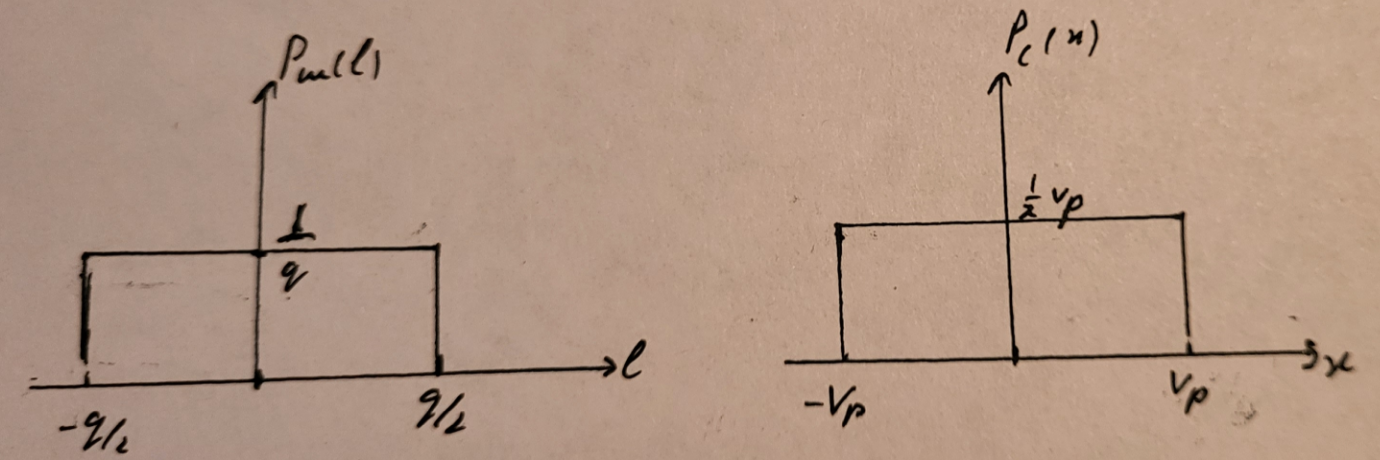 Pm(l)
1/q
l
-q/2
q/2
Pc(x)
1/2 Vp
x
-Vp
Vp